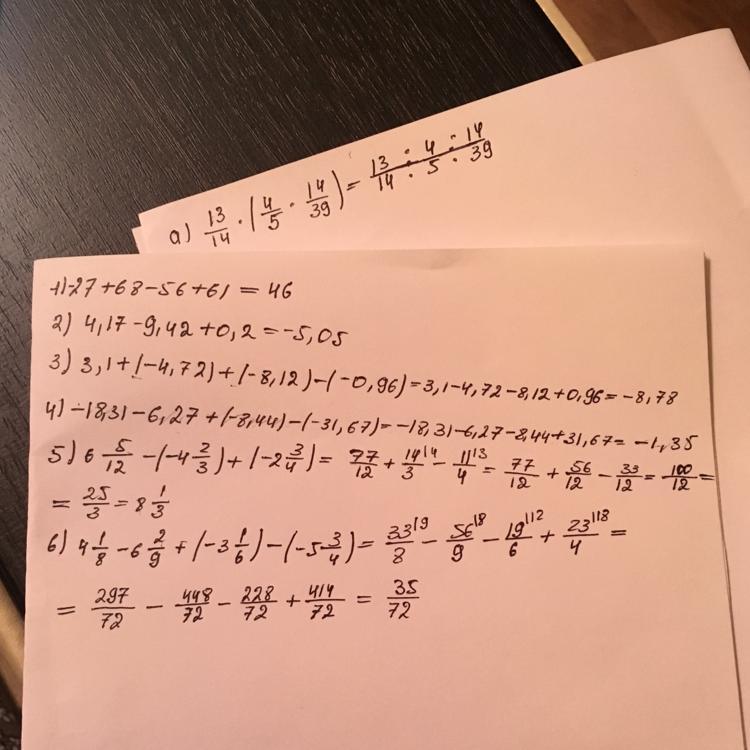 а) 13/14 · (4/5 · 14/39) = 13 · 4 · 14 / 14 · 5 · 39
1) -27 + 68 - 56 + 61 = 46
2) 4,17 - 9,42 + 0,2 = -5,05
3) 3,1 + (-4,72) + (-8,12) - (-0,96) = 3,1 - 4,72 - 8,12 + 0,96 = -8,78
4) -18,31 - 6,27 + (-8,44) - (-31,67) = -18,31 - 6,27 - 8,44 + 31,67 = -1,35
5) 6 5/12 - (-4 2/3) + (-2 3/4) = 77/12 + 14/3 |4 - 11/4 |3 = 77/12 + 56/12 - 33/12 = 100/12 =
= 25/3 = 8 1/3
6) 4 1/8 - 6 2/9 + (-3 1/6) - (-5 3/4) = 33/8 |9 - 56/9 |8 - 19/6 |12 + 23/4 |18 =
= 297/72 - 448/72 - 228/72 + 414/72 = 35/72